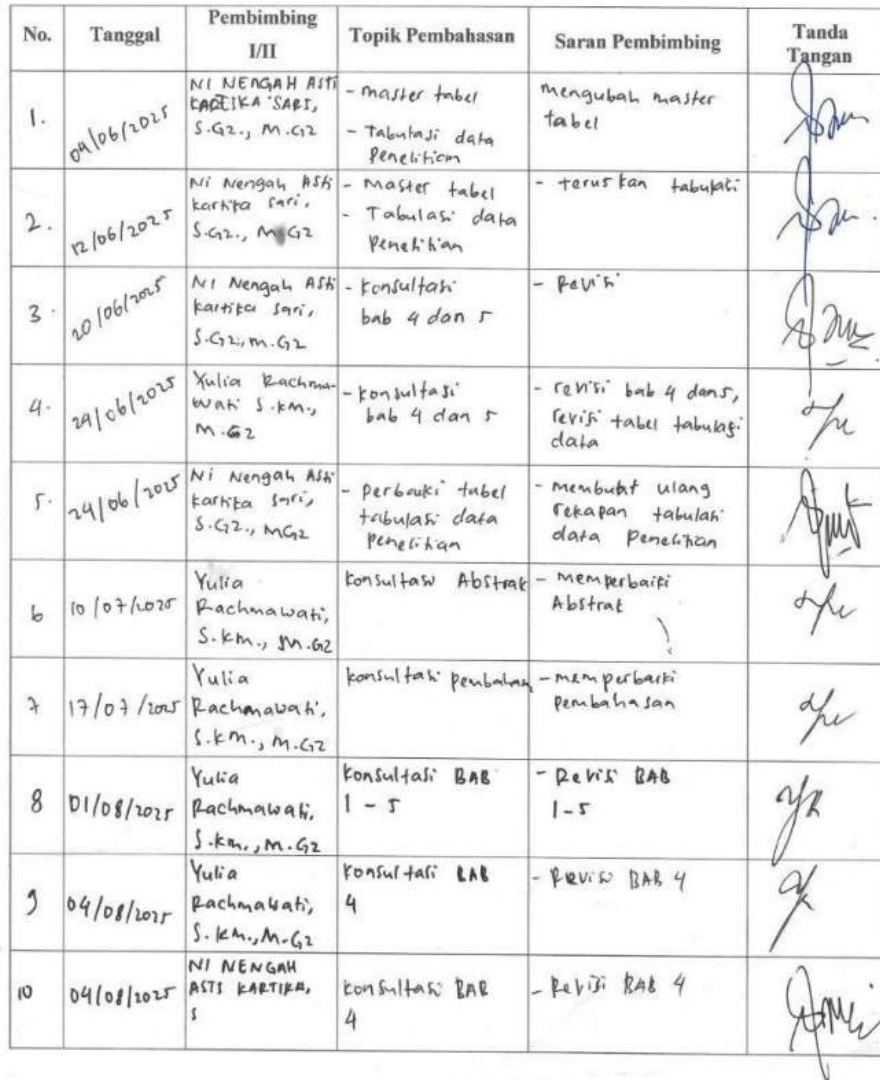 No. Tanggal Pembimbing I/II Topik Pembahasan Saran Pembimbing Tanda Tangan
1. 04/06/2025
NI NENGAH ASTI
KARTIKA SARI,
S.Gz., M.Gz
- master tabel
- Tabulasi data
Penelitian
mengubah master
tabel
2. 12/06/2025
Ni Nengah Asti
kartika sari,
S.Gz., M.Gz
- Master tabel
- Tabulasi data
Penelitian
- teruskan tabulasi
3. 20/06/2025
Ni Nengah Asti
kartika sari,
S.Gz., M.Gz
- konsultasi
bab 4 dan 5
- Revisi
4. 24/06/2025
Yulia Rachma-
wati S.km.,
M.Gz
- konsultasi
bab 4 dan 5
- revisi bab 4 dan 5,
revisi tabel tabulasi
data
5. 24/06/2025
Ni Nengah Asti
kartika sari,
S.Gz., MGz
- perbaiki tabel
tabulasi data
penelitian
- membuat ulang
rekapan tabulasi
data penelitian
6 10/07/2025
Yulia
Rachmawati,
S.km., M.Gz
konsultasi Abstrak
- memperbaiki
Abstrak
7 17/07/2025
Yulia
Rachmawati,
S.km., M.Gz
konsultasi pembahan
- memperbaiki
pembahasan
8 01/08/2025
Yulia
Rachmawati,
S.km., M.Gz
konsultasi BAB
1 - 5
- Revisi BAB
1 - 5
9 04/08/2025
Yulia
Rachmawati,
S.km., M.Gz
konsultasi BAB
4
- Revisi BAB 4
10 04/08/2025
NI NENGAH
ASTI KARTIKA,
S
konsultasi BAB
4
- Revisi BAB 4